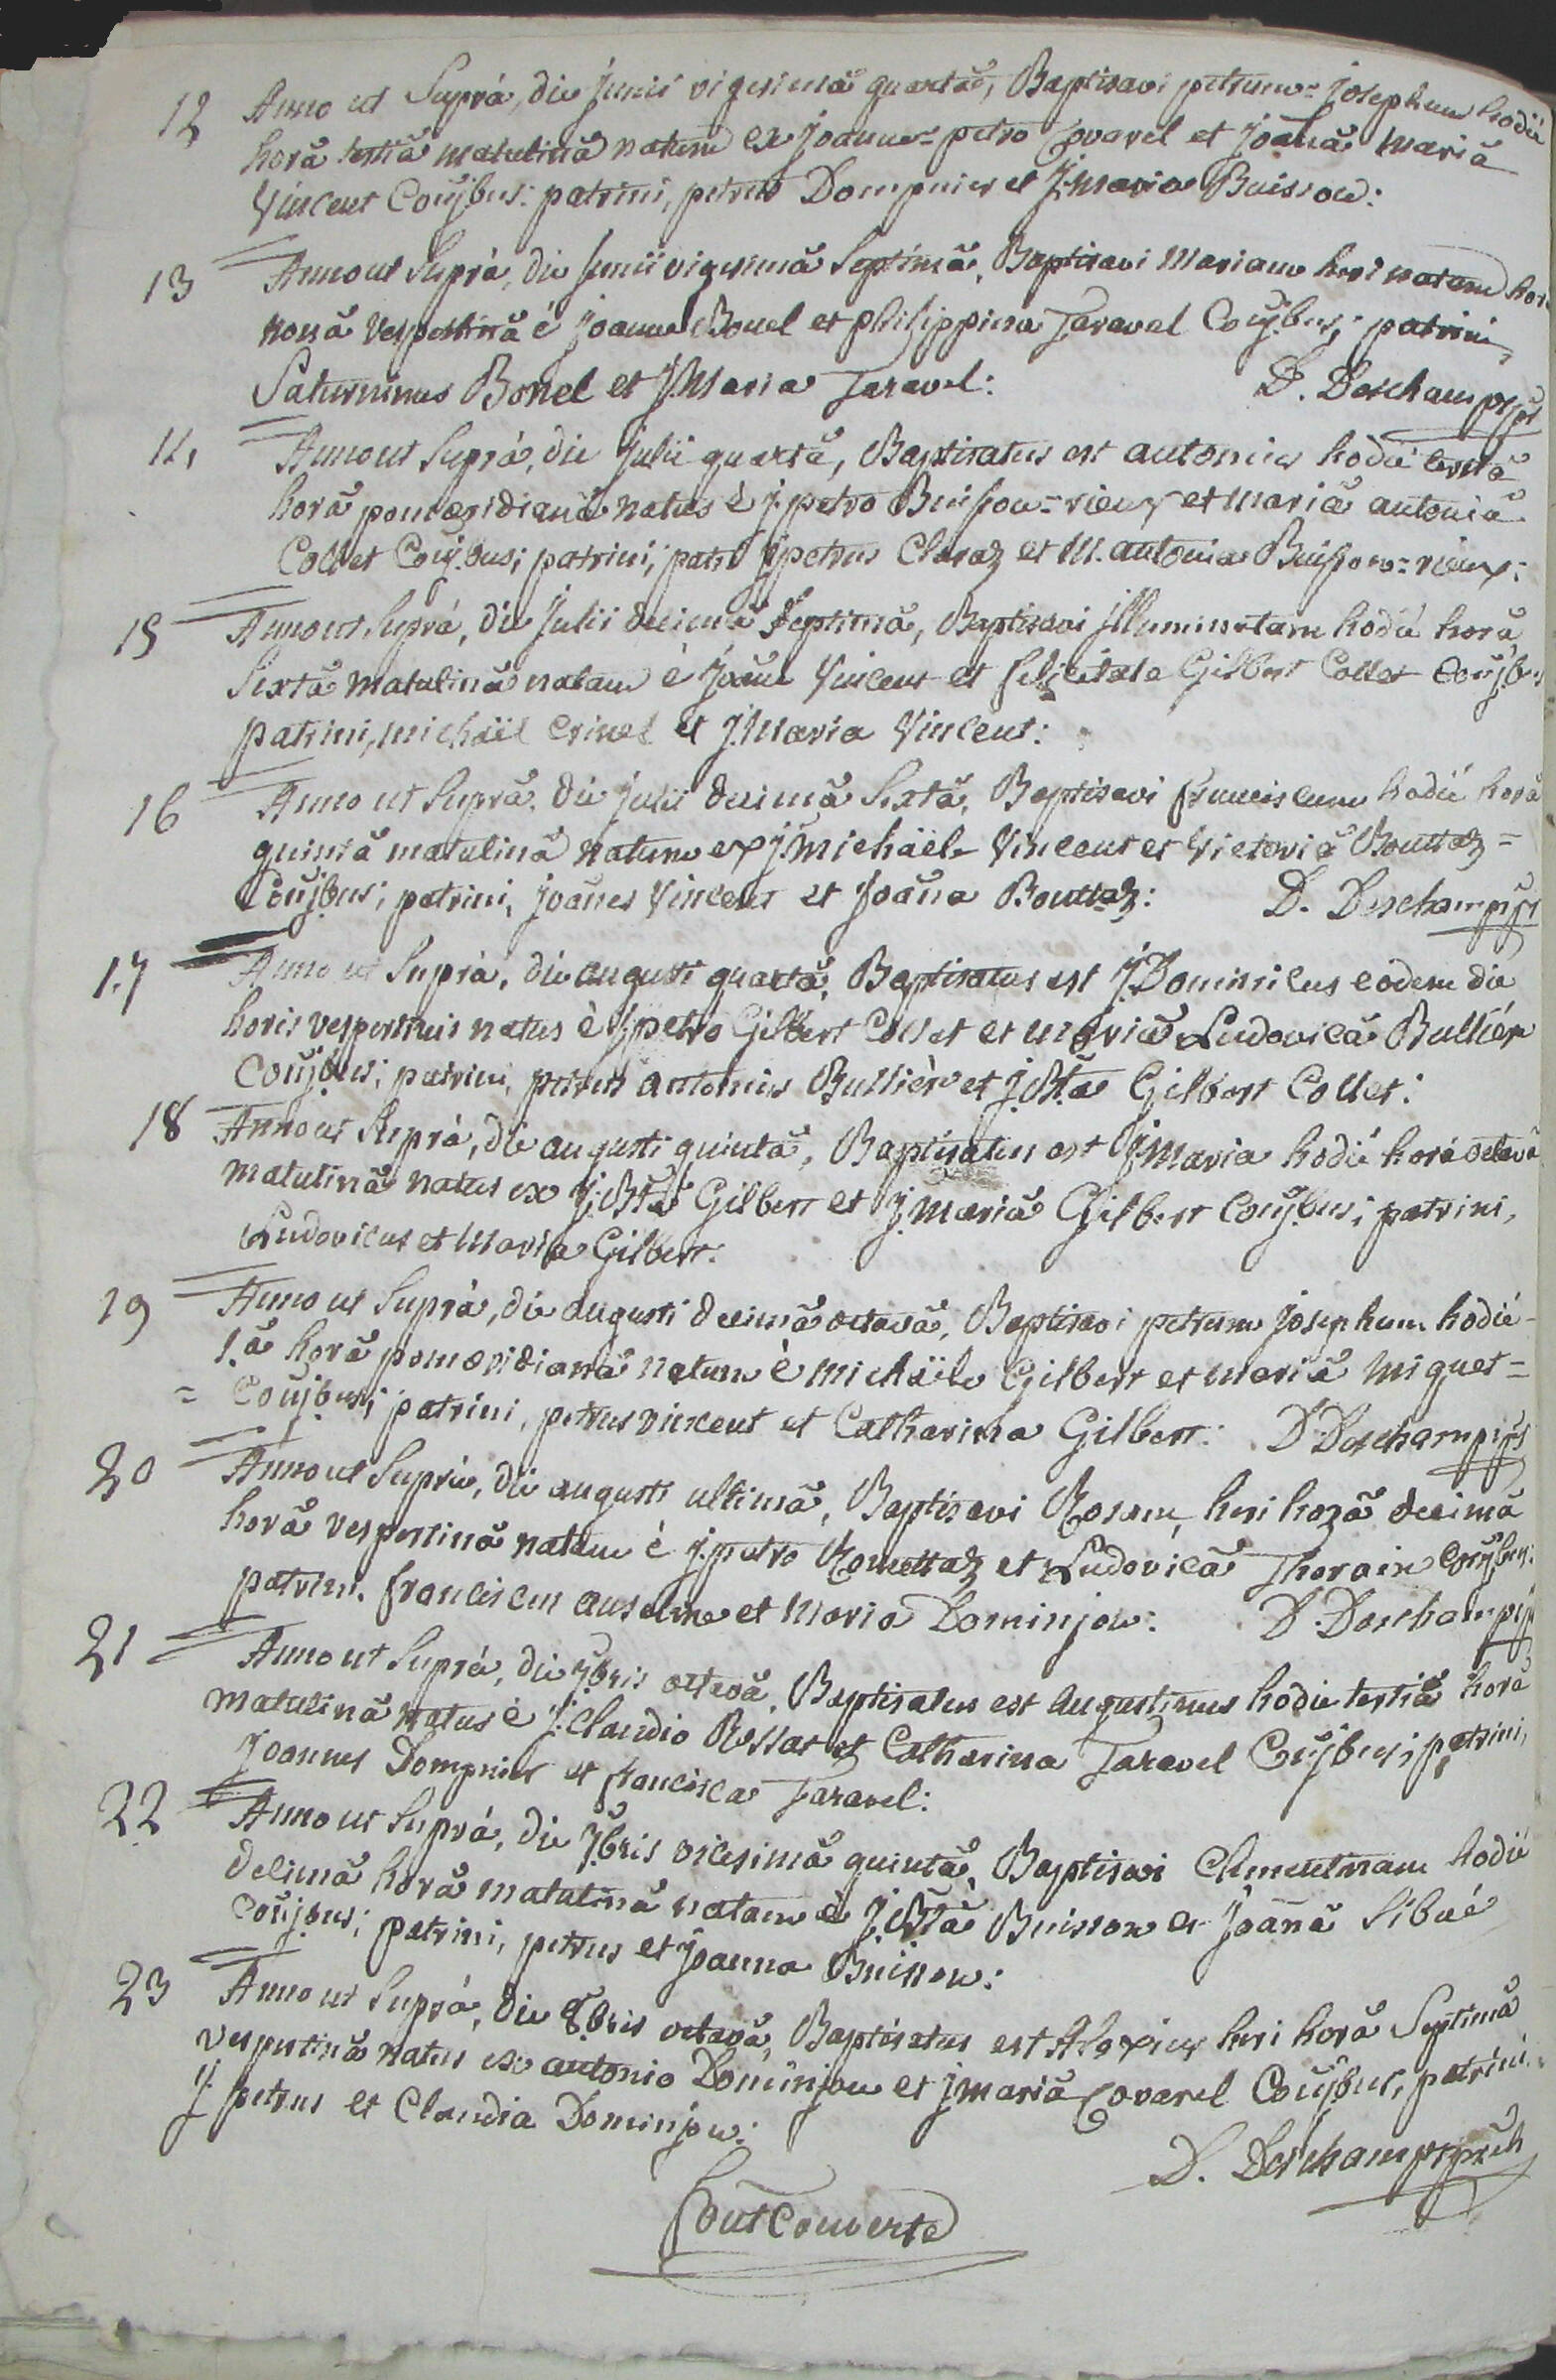 12 Anno ut Suprà, die junii vigesimâ quartâ, Baptisavi petrum=josephum hodiè
horâ tertiâ matutinâ natum ex joanne=petro Covarel et joañâ mariâ
Vincent Coñjbus: patrini, petrus Dompnier et J.maria Buisson:
13 Anno ut Suprà, die junii vigesimâ Septimâ, Baptisavi Mariam heri natam hor
nonâ Vespertinâ è joanne Bonel et philippina Taravel Coñj.bus; patrini,
Saturninus Bonel et J.Maria Taravel: D. Deschamps
14 Anno ut Suprà, die julii quartâ, Baptisatus est antonius hodiè tertiâ
horâ pomeridianâ natus è j.petro Buisson=rieux et mariâ antoniâ
Collet Coñj.bus; patrini, j.petrus Claraz et M. antonia Buisson=rieux:
15 Anno ut Suprà, die julii decimâ Septimâ, Baptisavi jlluminatam hodiè horâ
Sextâ matutinâ natam è joañe Vincent et felicitate Gilbert Collet Coñjbus
patrini, michäel crinel et J.Maria Vincent:
16 Anno ut Suprà, die julii decimâ Sextâ, Baptisavi franciscum hodiè horâ
quintâ matutinâ natum ex J.michäele Vincent et Victoriâ Bouttaz=
Coñjbus; patrini, joañes Vincent et joaña Bouttaz: D. Deschamps
17 Anno ut Suprà, die augusti quartâ, Baptisatus est J.Dominicus eodem die
horis vespertinis natus è j.petro Gilbert Collet et mariâ Ludovicâ Bullièr
Coñjbus; patrini, petrus antonius Bullièr et J.Bta Gilbert Collet:
18 Anno ut Suprà, die augusti quintâ, Baptisatus est J.maria hodiè horâ octavâ
matutinâ natus ex J.Btâ Gilbert et J.mariâ Gilbert Coñj.bus; patrini,
Ludovicus et Maria Gilbert:
19 Anno ut Suprà, die augusti decimâ octavâ, Baptisavi petrum josephum hodiè
1.â horâ pomeridianâ natum è michäele Gilbert et mariâ miquet=
= Coñjbus; patrini, petrus vincent et Catharina Gilbert: D. Deschamps
20 Anno ut Suprà, die augusti ultimâ, Baptisavi Rosam, heri horâ decimâ
horâ vespertinâ natam è j.petro Romettaz et Ludovicâ Thorain Coñjbus:
patrini, franciscus anselme et Maria Dominjon: D. Deschamps
21 Anno ut Suprà, die 7bris octavâ, Baptisatus est augustinus hodie tertiâ horâ
matutinâ natus è J.Claudio Rossat et Catharina Taravel Coñjbus; patrini,
Joannes Dompnier et francisca Taravel:
22 Anno ut Suprà, die 7bris vicesimâ quintâ, Baptisavi Clementinam hodiè
decimâ horâ matutinâ natam è J.Btâ Buisson et joañâ Sibué
Coñjbus; patrini, petrus et joanna Buisson:
23 Anno ut Suprà, die 8bris octavâ, Baptisatus est Alexius heri horâ Septimâ
vespertinâ natus ex antonio Dominjon et j.mariâ Covarel Coñjbus, patrini
J. petrus et Claudia Dominjon:
D. Deschamps